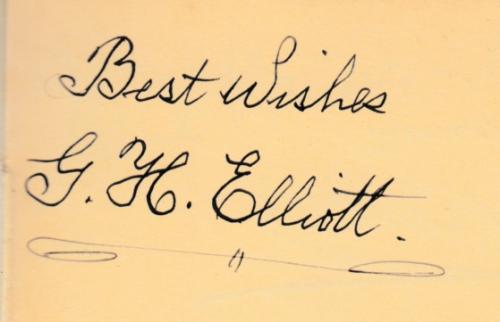 Best Wishes
G. H. Elliott.